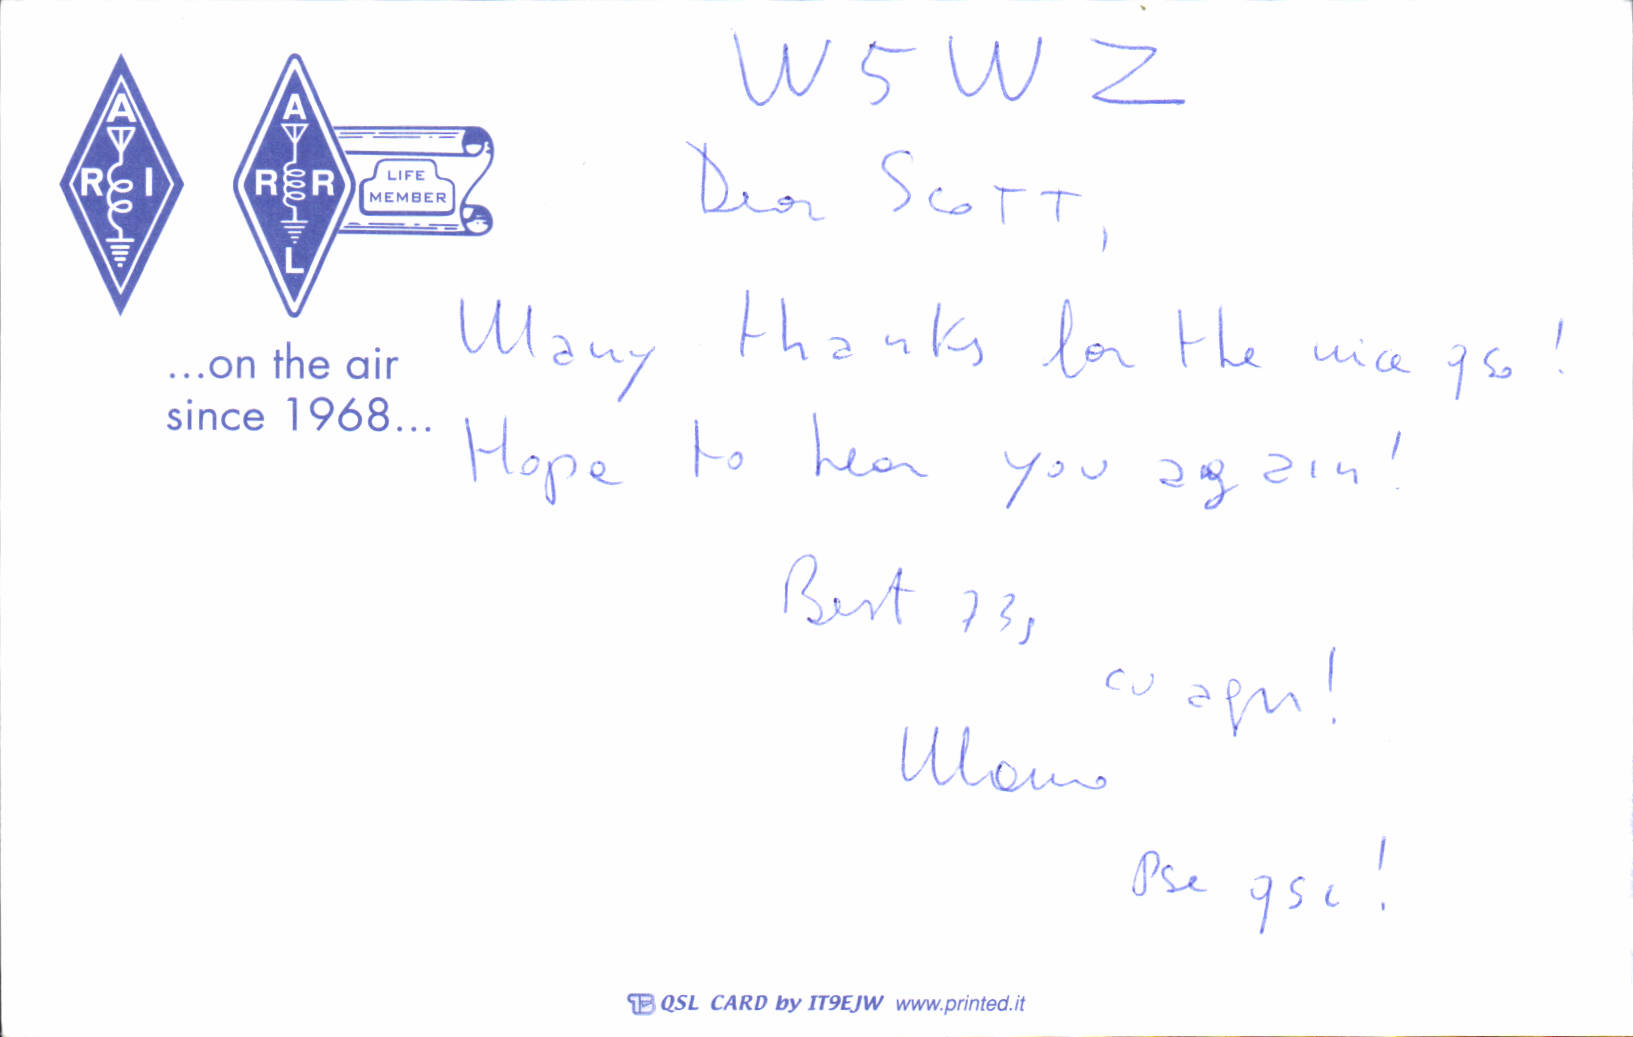 W5WZ
Dear Scott,
Many thanks for the nice qso!
Hope to hear you again!
Best 73,
cu agn!
Pse qsl!
A
R I
A
R R
L
LIFE
MEMBER
...on the air
since 1968...
QSL CARD by IT9EJW www.printed.it